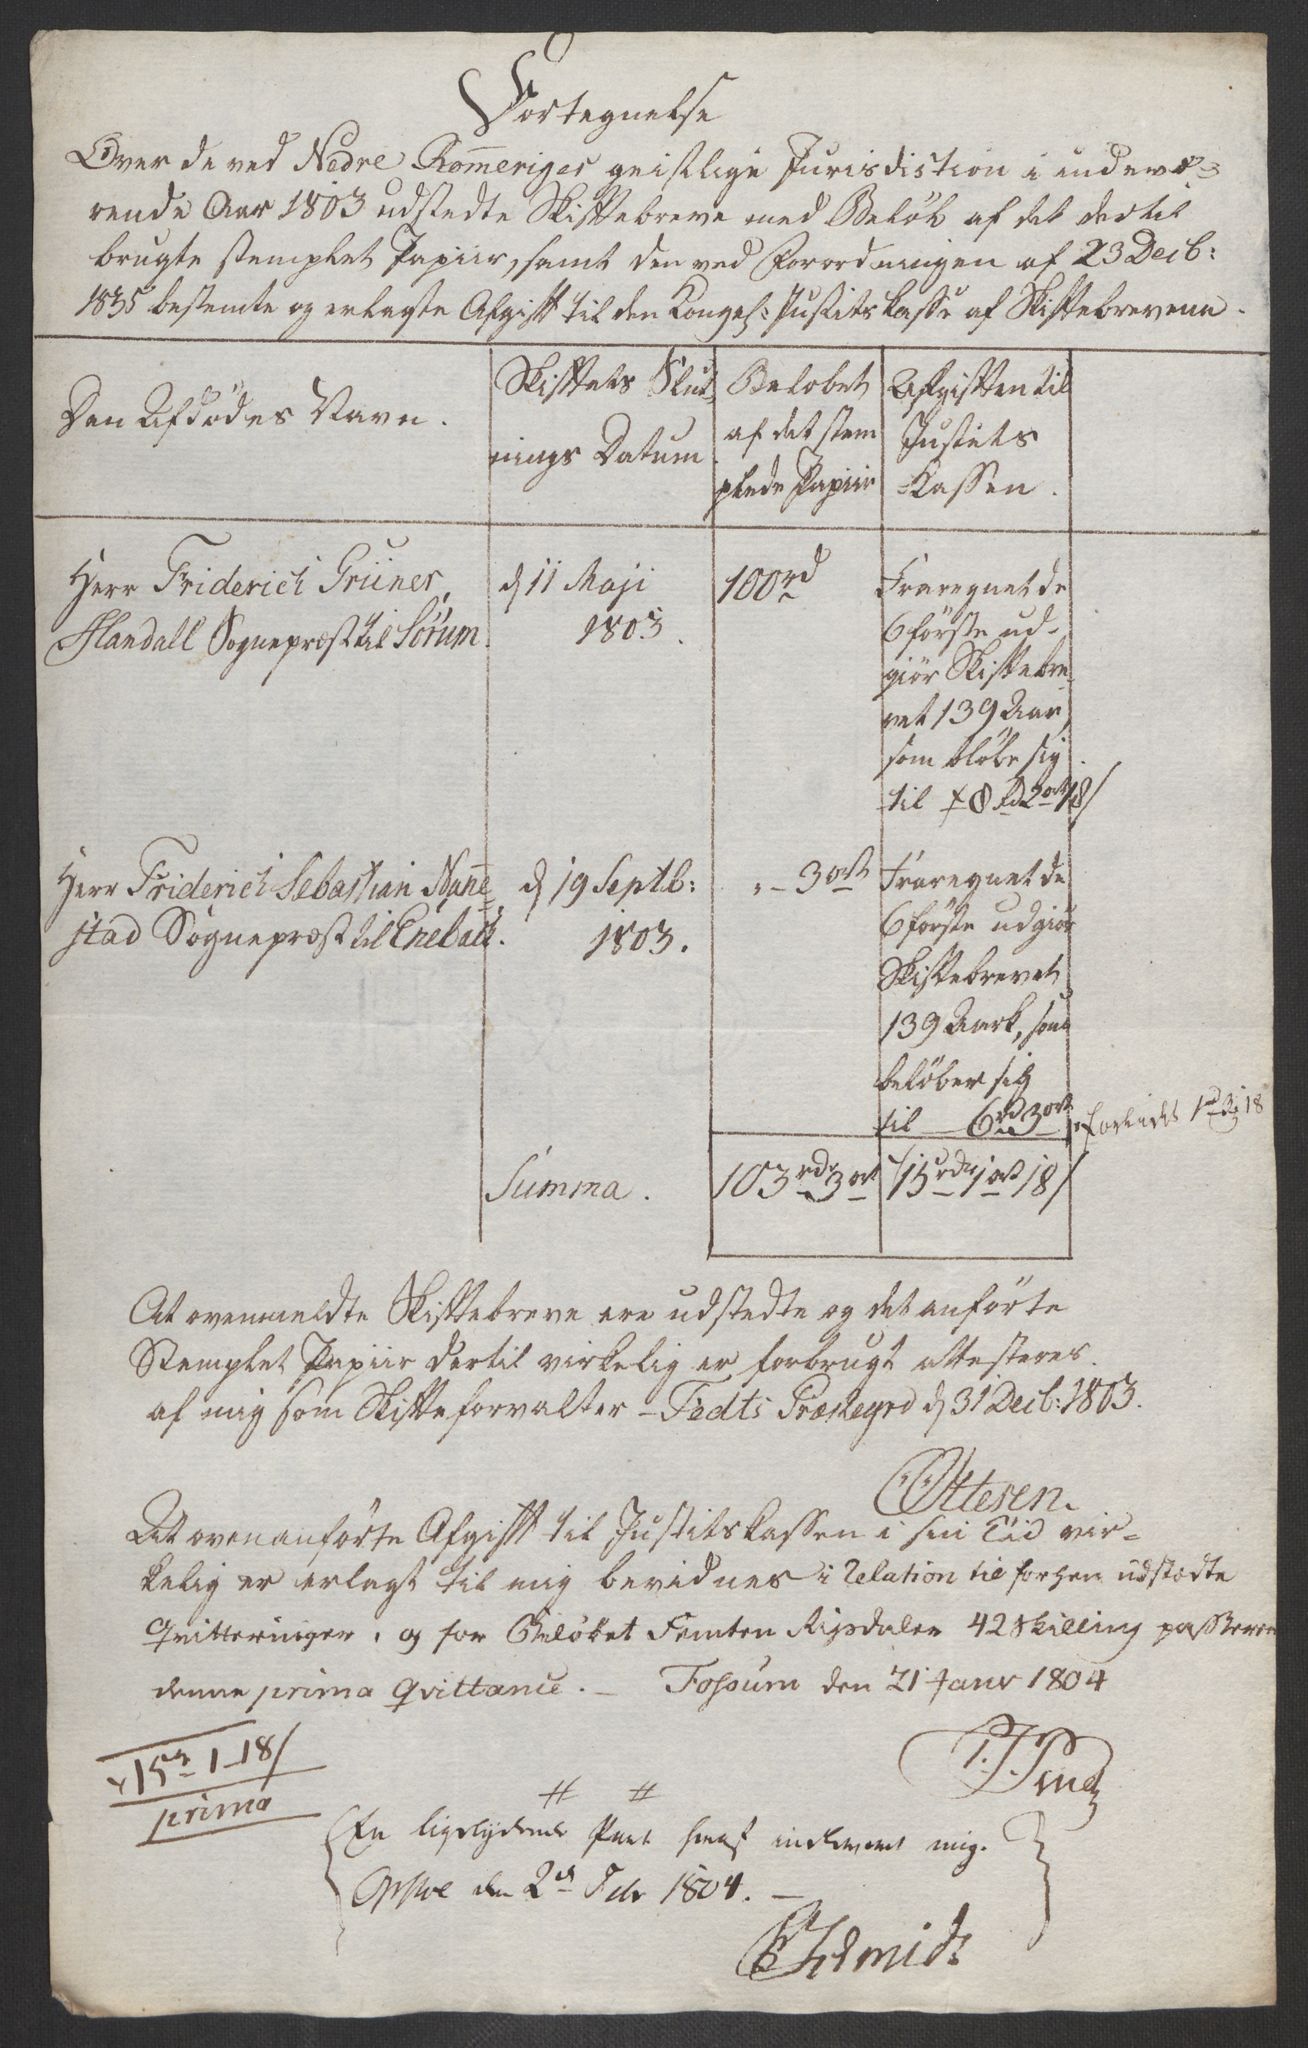 Fortegnelse
Over de ved Nedre Rom̅eriges geistlige Jurisdiction i indevæ-
rende Aar 1803 udstedte Skiftebreve med Beløb af det dertil
brugte stemplet Papiir, samt den ved Forordningen af 23 Decb:
1735 bestemte og erlagte Afgift til den Kongel: Justitskasse af Skiftebrevene.
Den Afdødes Navn.
Skiftets Slut-
nings Datum
Beløbet
af det stem
plede Papiir
Afgiften til
Justits
Kassen.
Herr Friderich Grüner,
Flandall Sognepræst til Sørum.
d 11 Maji
1803.
100 rd
Fraregnet de
6 første ud-
giör Skiftebre-
vet 139 Aar,
som bløbe sig
til 8 rd 2 ort 18 /
Herr Friderich Sebastian Nan̅e
stad Sognepræst til Enebak.
d 19 Septb:
1803.
" - 3 ort
Fraregnet de
6 første udgiör
Skiftebrevet
139 Aark, som
beløber sig
til — 6 rd 3 ort
Summa.
103 rd 3 ort
15 rd 1 ort 18 /
At ovenmeldte Skiftebreve ere udstedte og det anførte
Stemplet Papiir dertil virkelig er forbrugt attesteres
af mig som Skifteforvalter - Fedts Præstegrd d 31 Decb: 1803.
Ottesen.
At ovenanførte Afgift til Justitskassen i sin Tiid vir-
kelig er erlagt til mig bevidnes i Relation til forhen udstædte
Qvitteringer, og for Beløbet Femten Rigsdaler 42 skilling passerer
denne prima Qvittance. — Fossum den 21 Janv 1804
15 rd 1-18 /
prima
En ligelydende Part haves indleveret mig.
den 2d Febr 1804. —
Schmidt